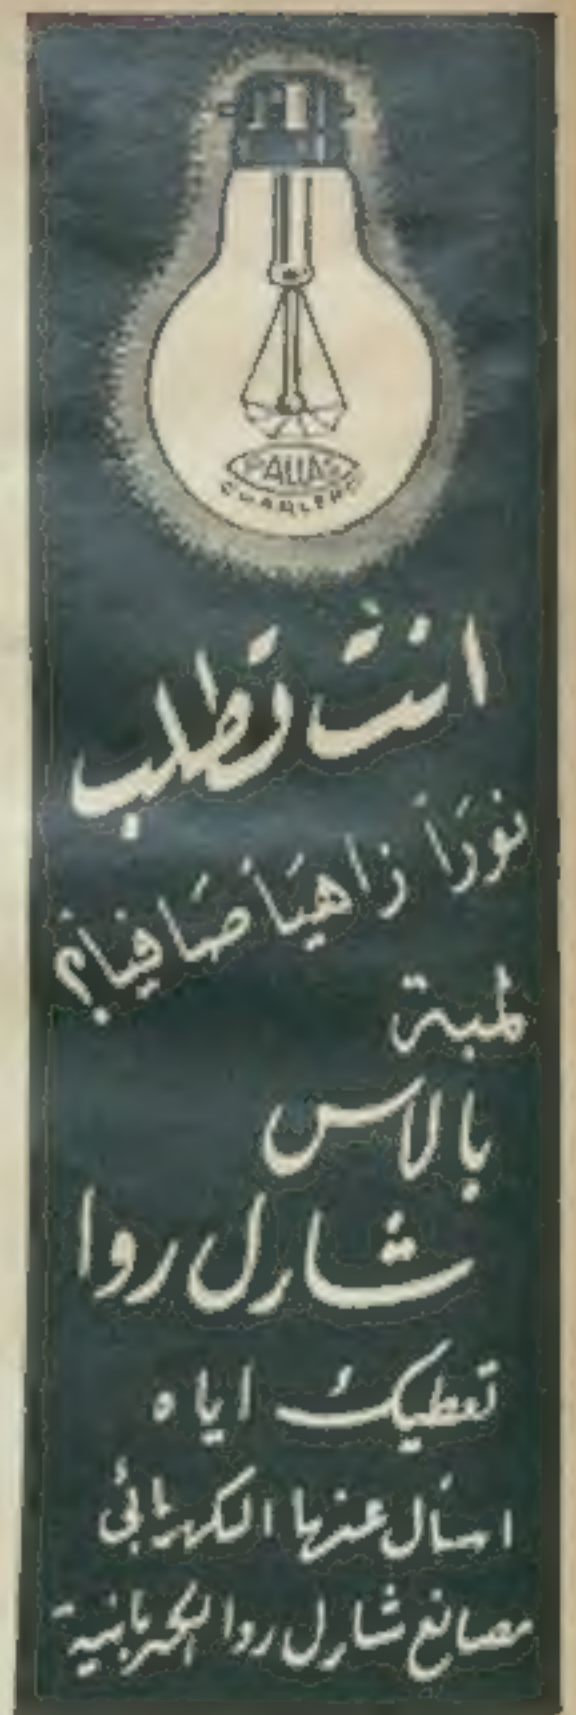 PALLAS
CHARLEROI
انت تطلب
نورَاً زاهيَاً صَافياً؟
لمبة
بالاس
شارل روا
تعطيك اياه
اسأل عنها الكهربائي
مصانع شارل روا الكهربائية